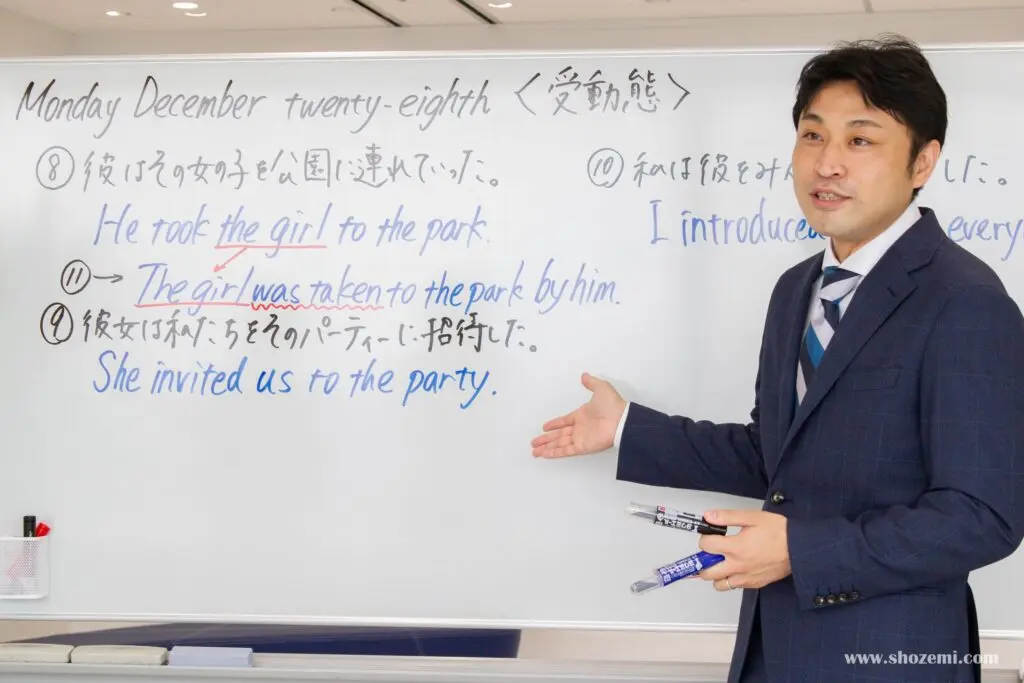 Monday December twenty-eighth 〈受動態〉
⑧ 彼はその女の子を公園に連れていった。
He took the girl to the park.
⑪→ The girl was taken to the park by him.
⑨ 彼女は私たちをそのパーティーに招待した。
She invited us to the party.
⑩ 私は彼をみ した。
I introduced every
www.shozemi.com